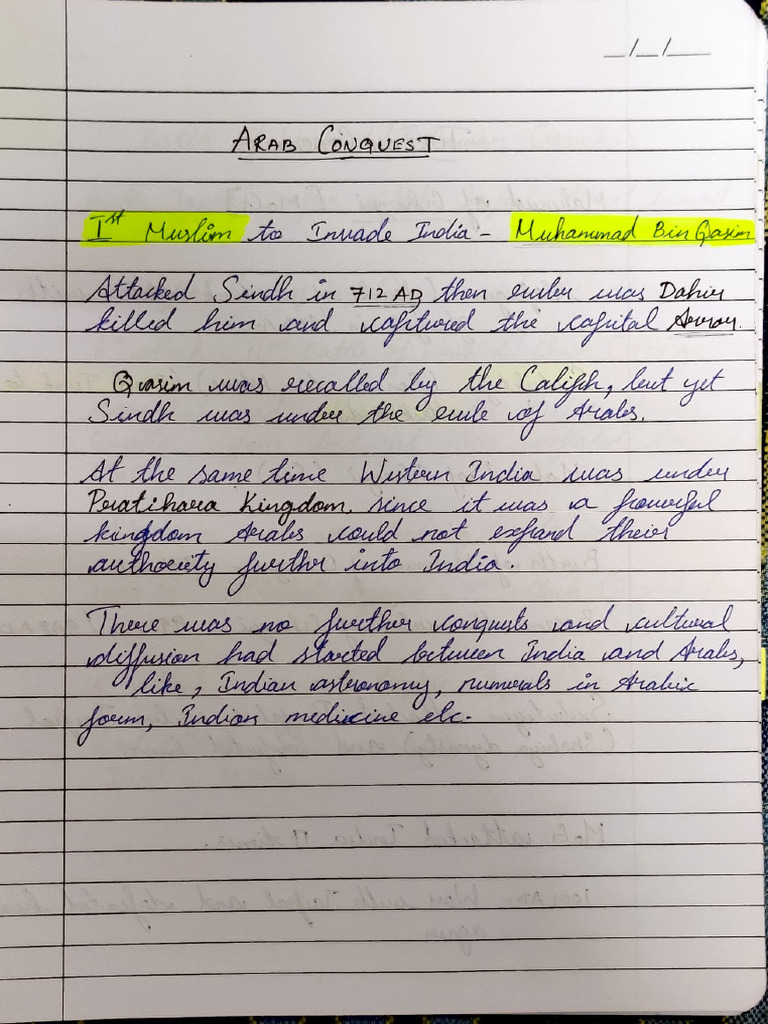 _/_/_
ARAB CONQUEST
Ist Muslim to Invade India - Muhammad Bin Qasim
Attacked Sindh in 712 AD then ruler was Dahir
killed him and captured the capital Arror.
Qasim was recalled by the Caliph, but yet
Sindh was under the rule of Arabs.
At the same time Western India was under
Pratihara Kingdom. since it was a powerful
kingdom Arabs could not expand their
authority further into India.
There was no further conquests and cultural
diffusion had started between India and Arabs,
like, Indian astronomy, numerals in Arabic
form, Indian medicine etc.